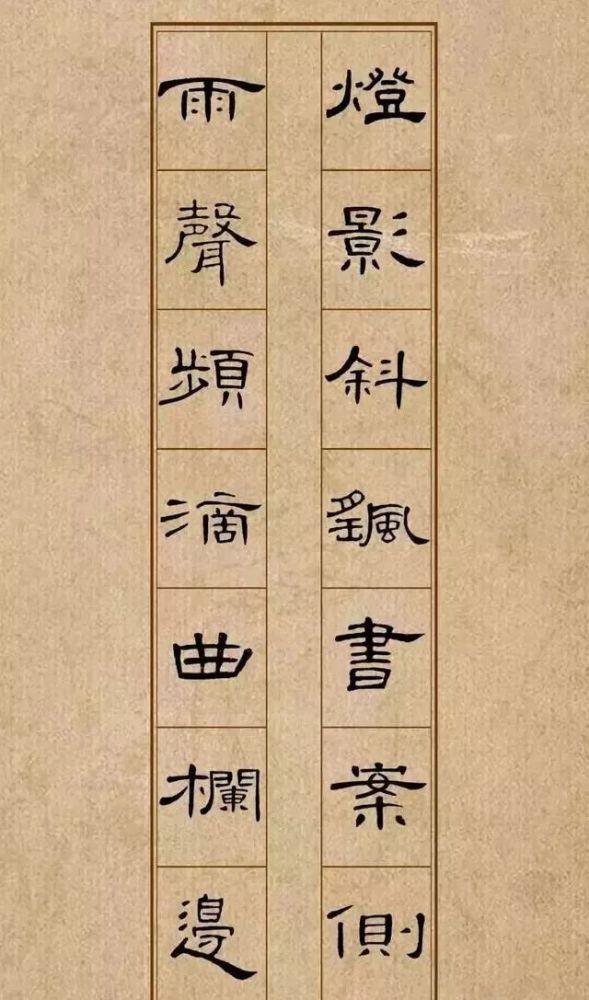 燈影斜書案側
雨聲頻滴曲欄邊